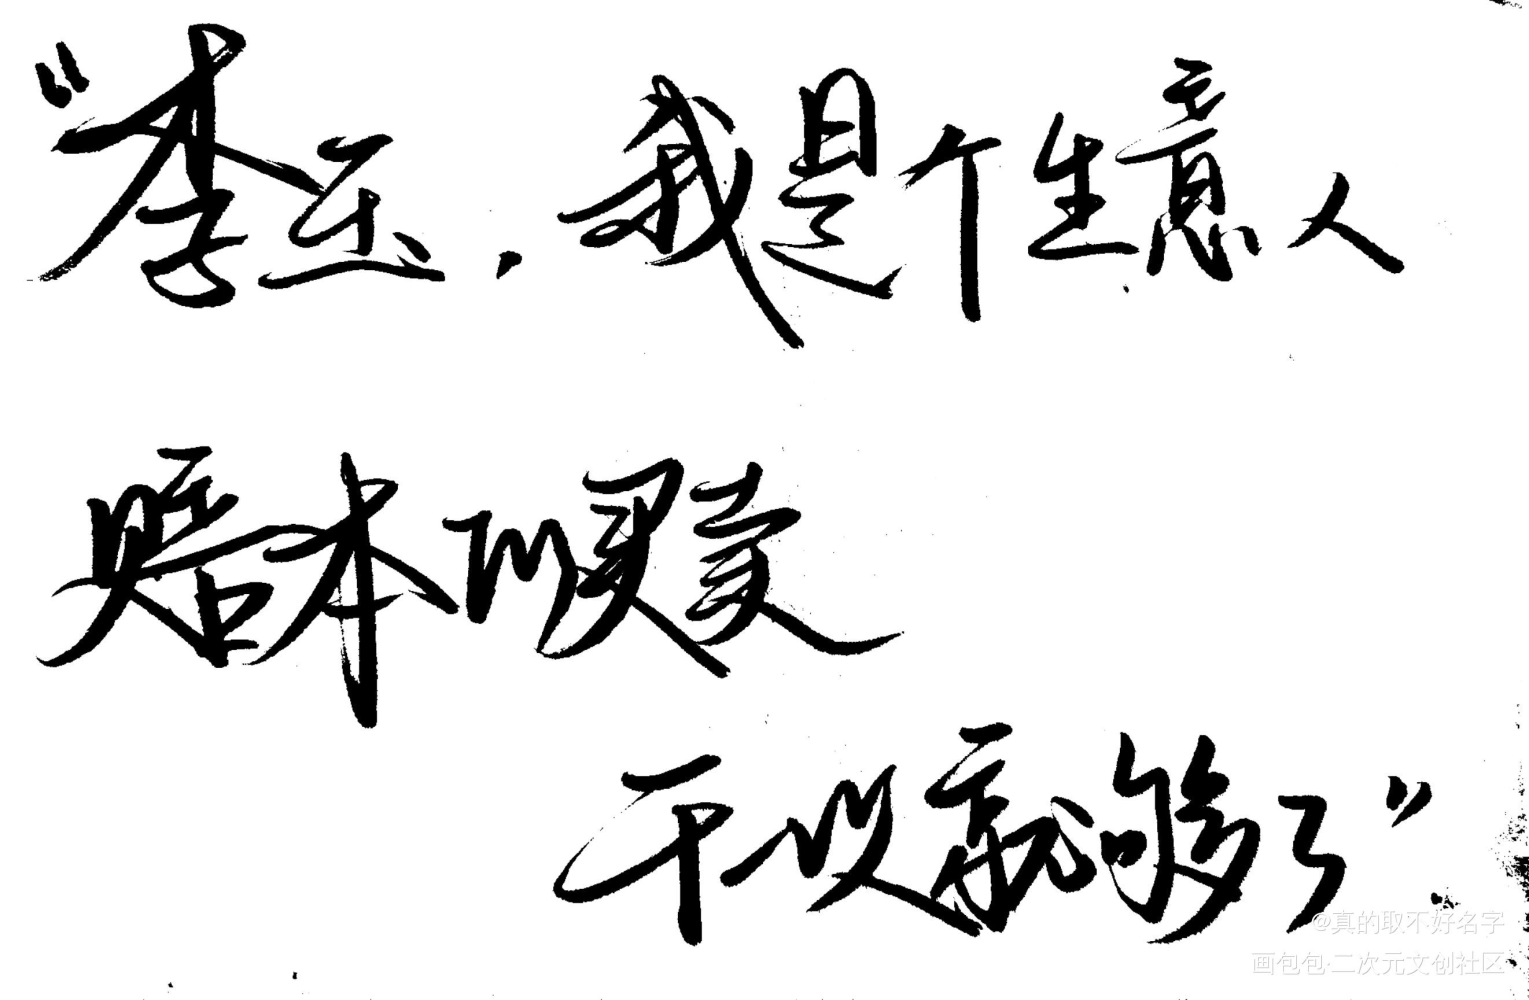 “李玉，我是个生意人
赔本的买卖
干一次就够了”
@真的取不好名字
画包包·二次元文创社区